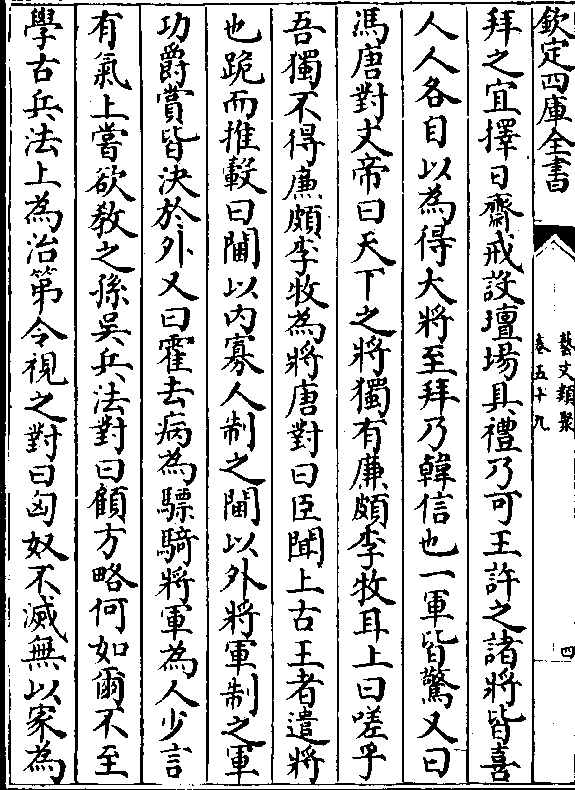 欽定四庫全書
藝文類聚
卷五十九
四
拜之宜擇日齋戒設壇場具禮乃可王許之諸將皆喜
人人各自以為得大將至拜乃韓信也一軍皆驚又曰
馮唐對文帝曰天下之將獨有廉頗李牧耳上曰嗟乎
吾獨不得廉頗李牧為將唐對曰臣聞上古王者遣將
也跪而推轂曰閫以内寡人制之閫以外將軍制之軍
功爵賞皆決於外又曰霍去病為驃騎將軍為人少言
有氣上嘗欲教之孫吳兵法對曰顧方略何如爾不至
學古兵法上為治第令視之對曰匈奴不滅無以家為